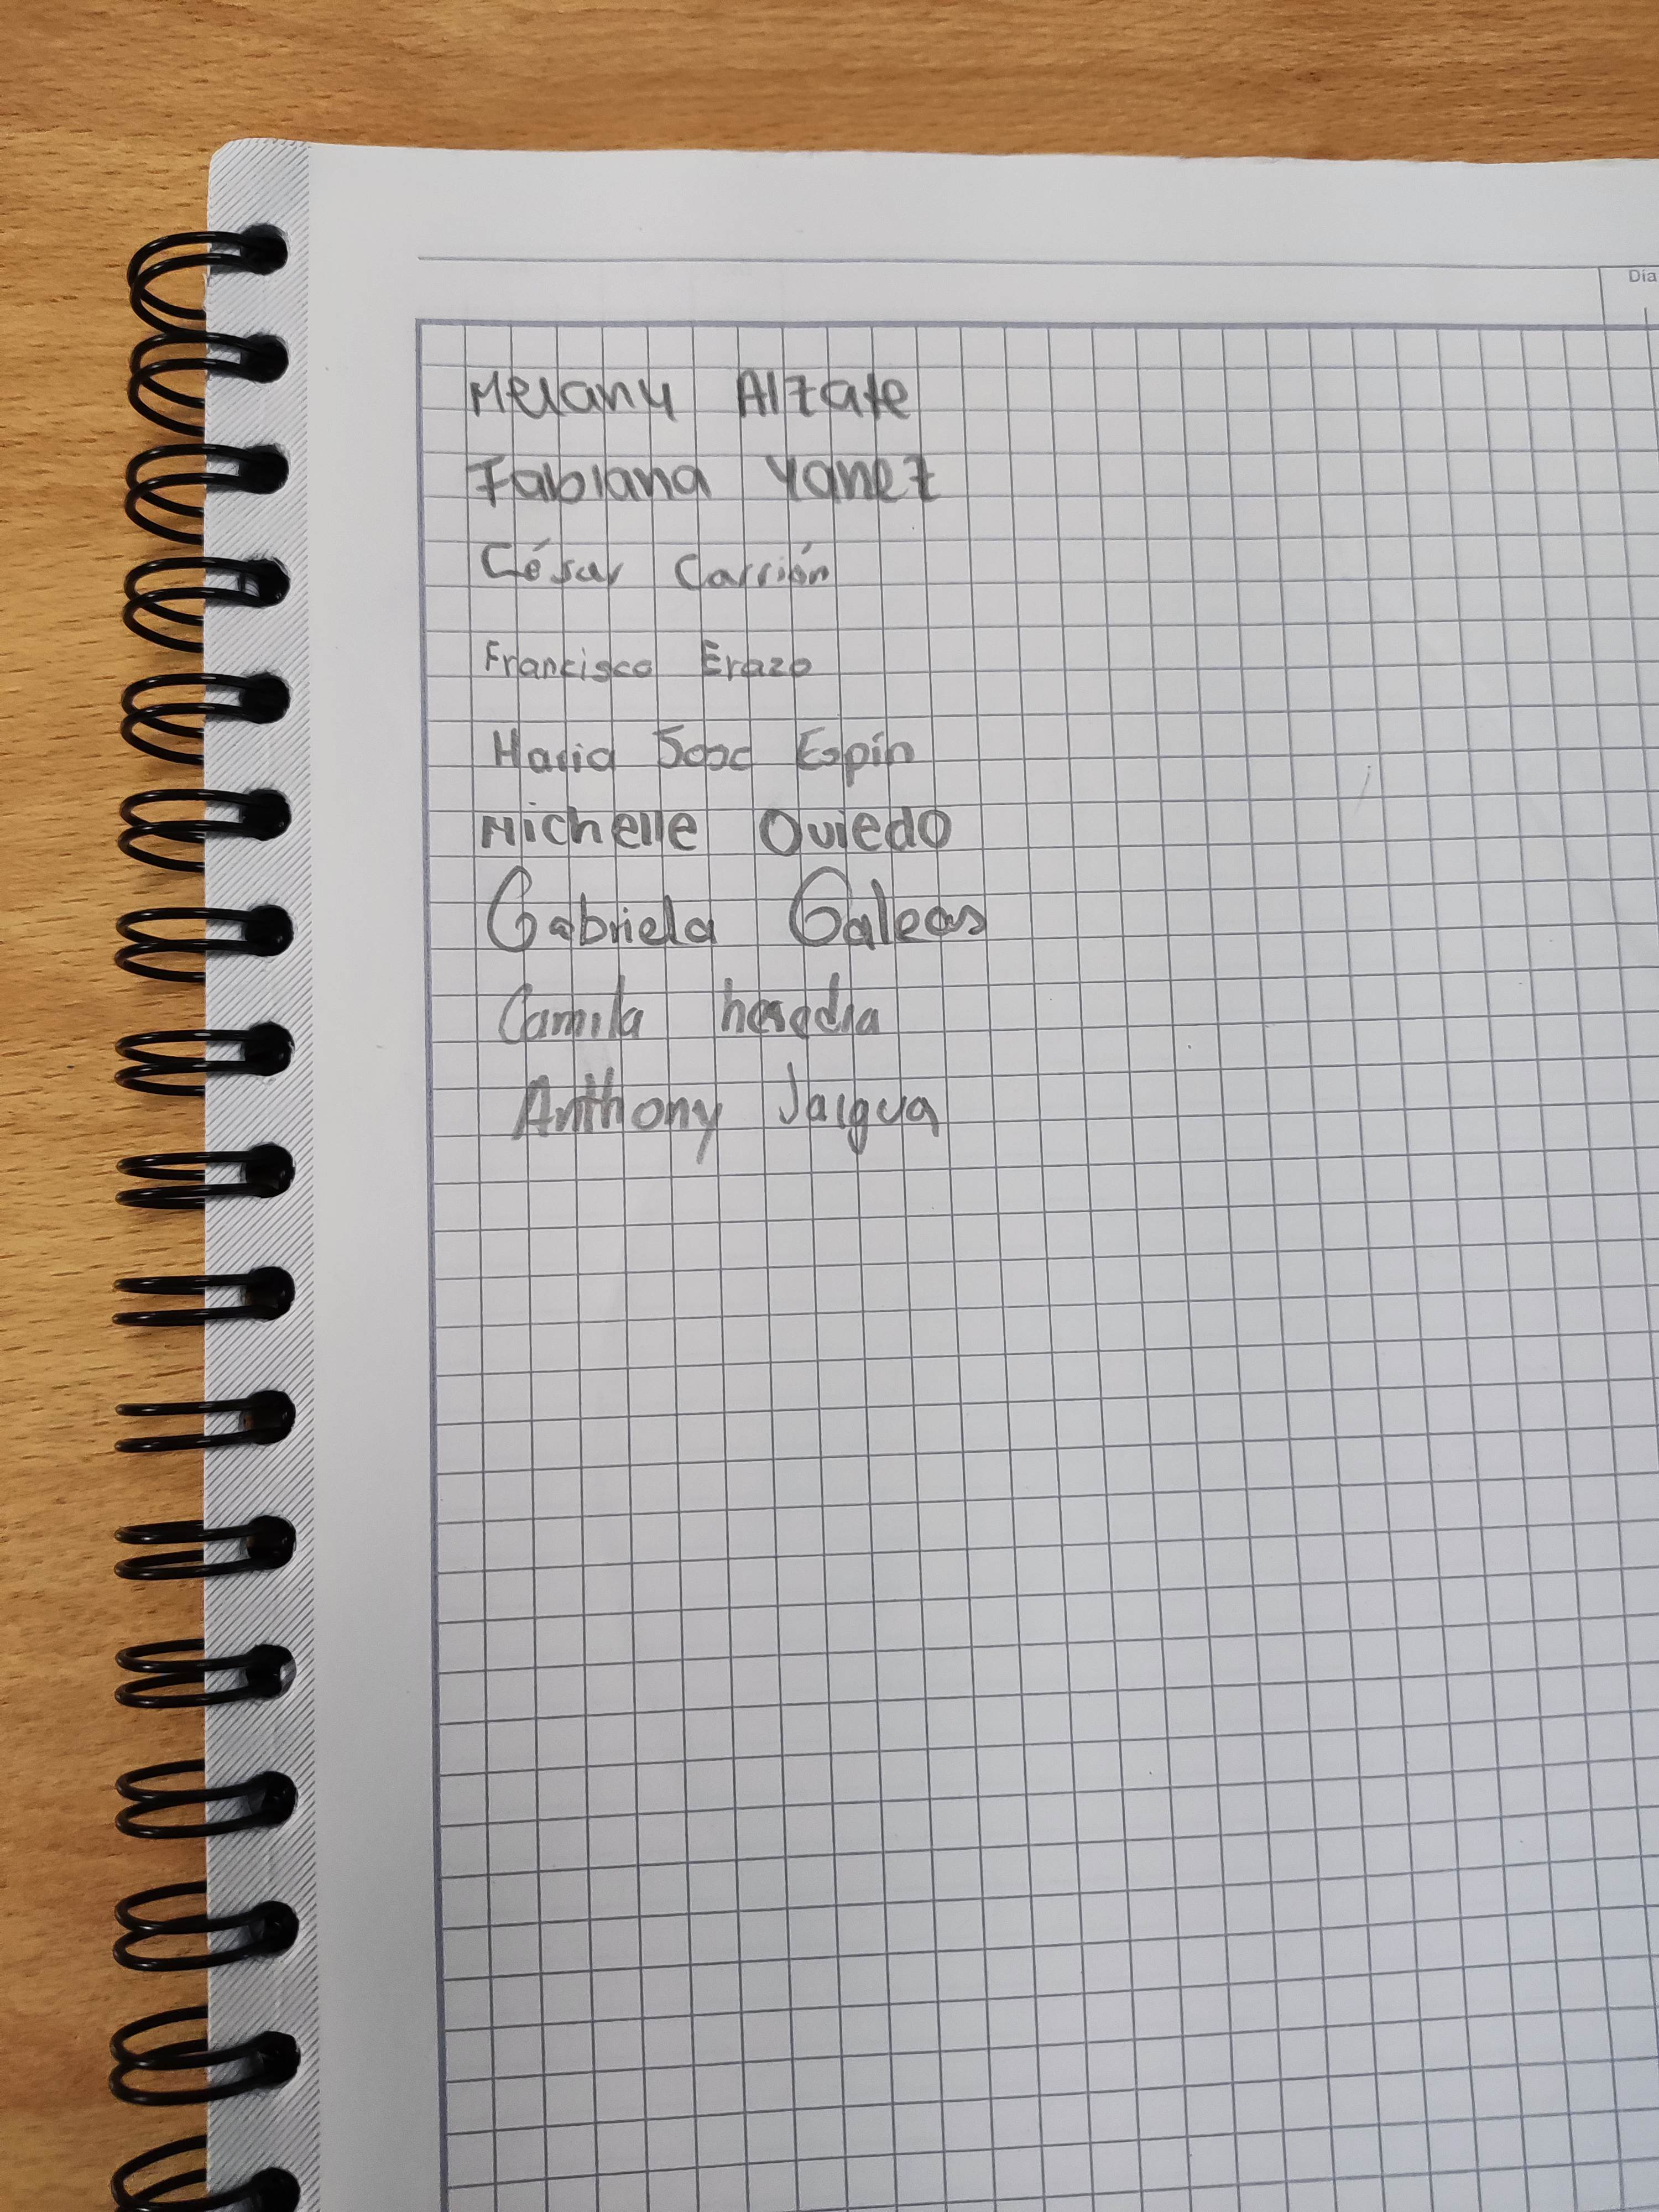 Día
Melany Alzate
Fabiana Yanez
César Carrión
Francisco Erazo
Maria Jose Espín
Michelle Oviedo
Gabriela Galeas
Camila heredia
Anthony Jaigua